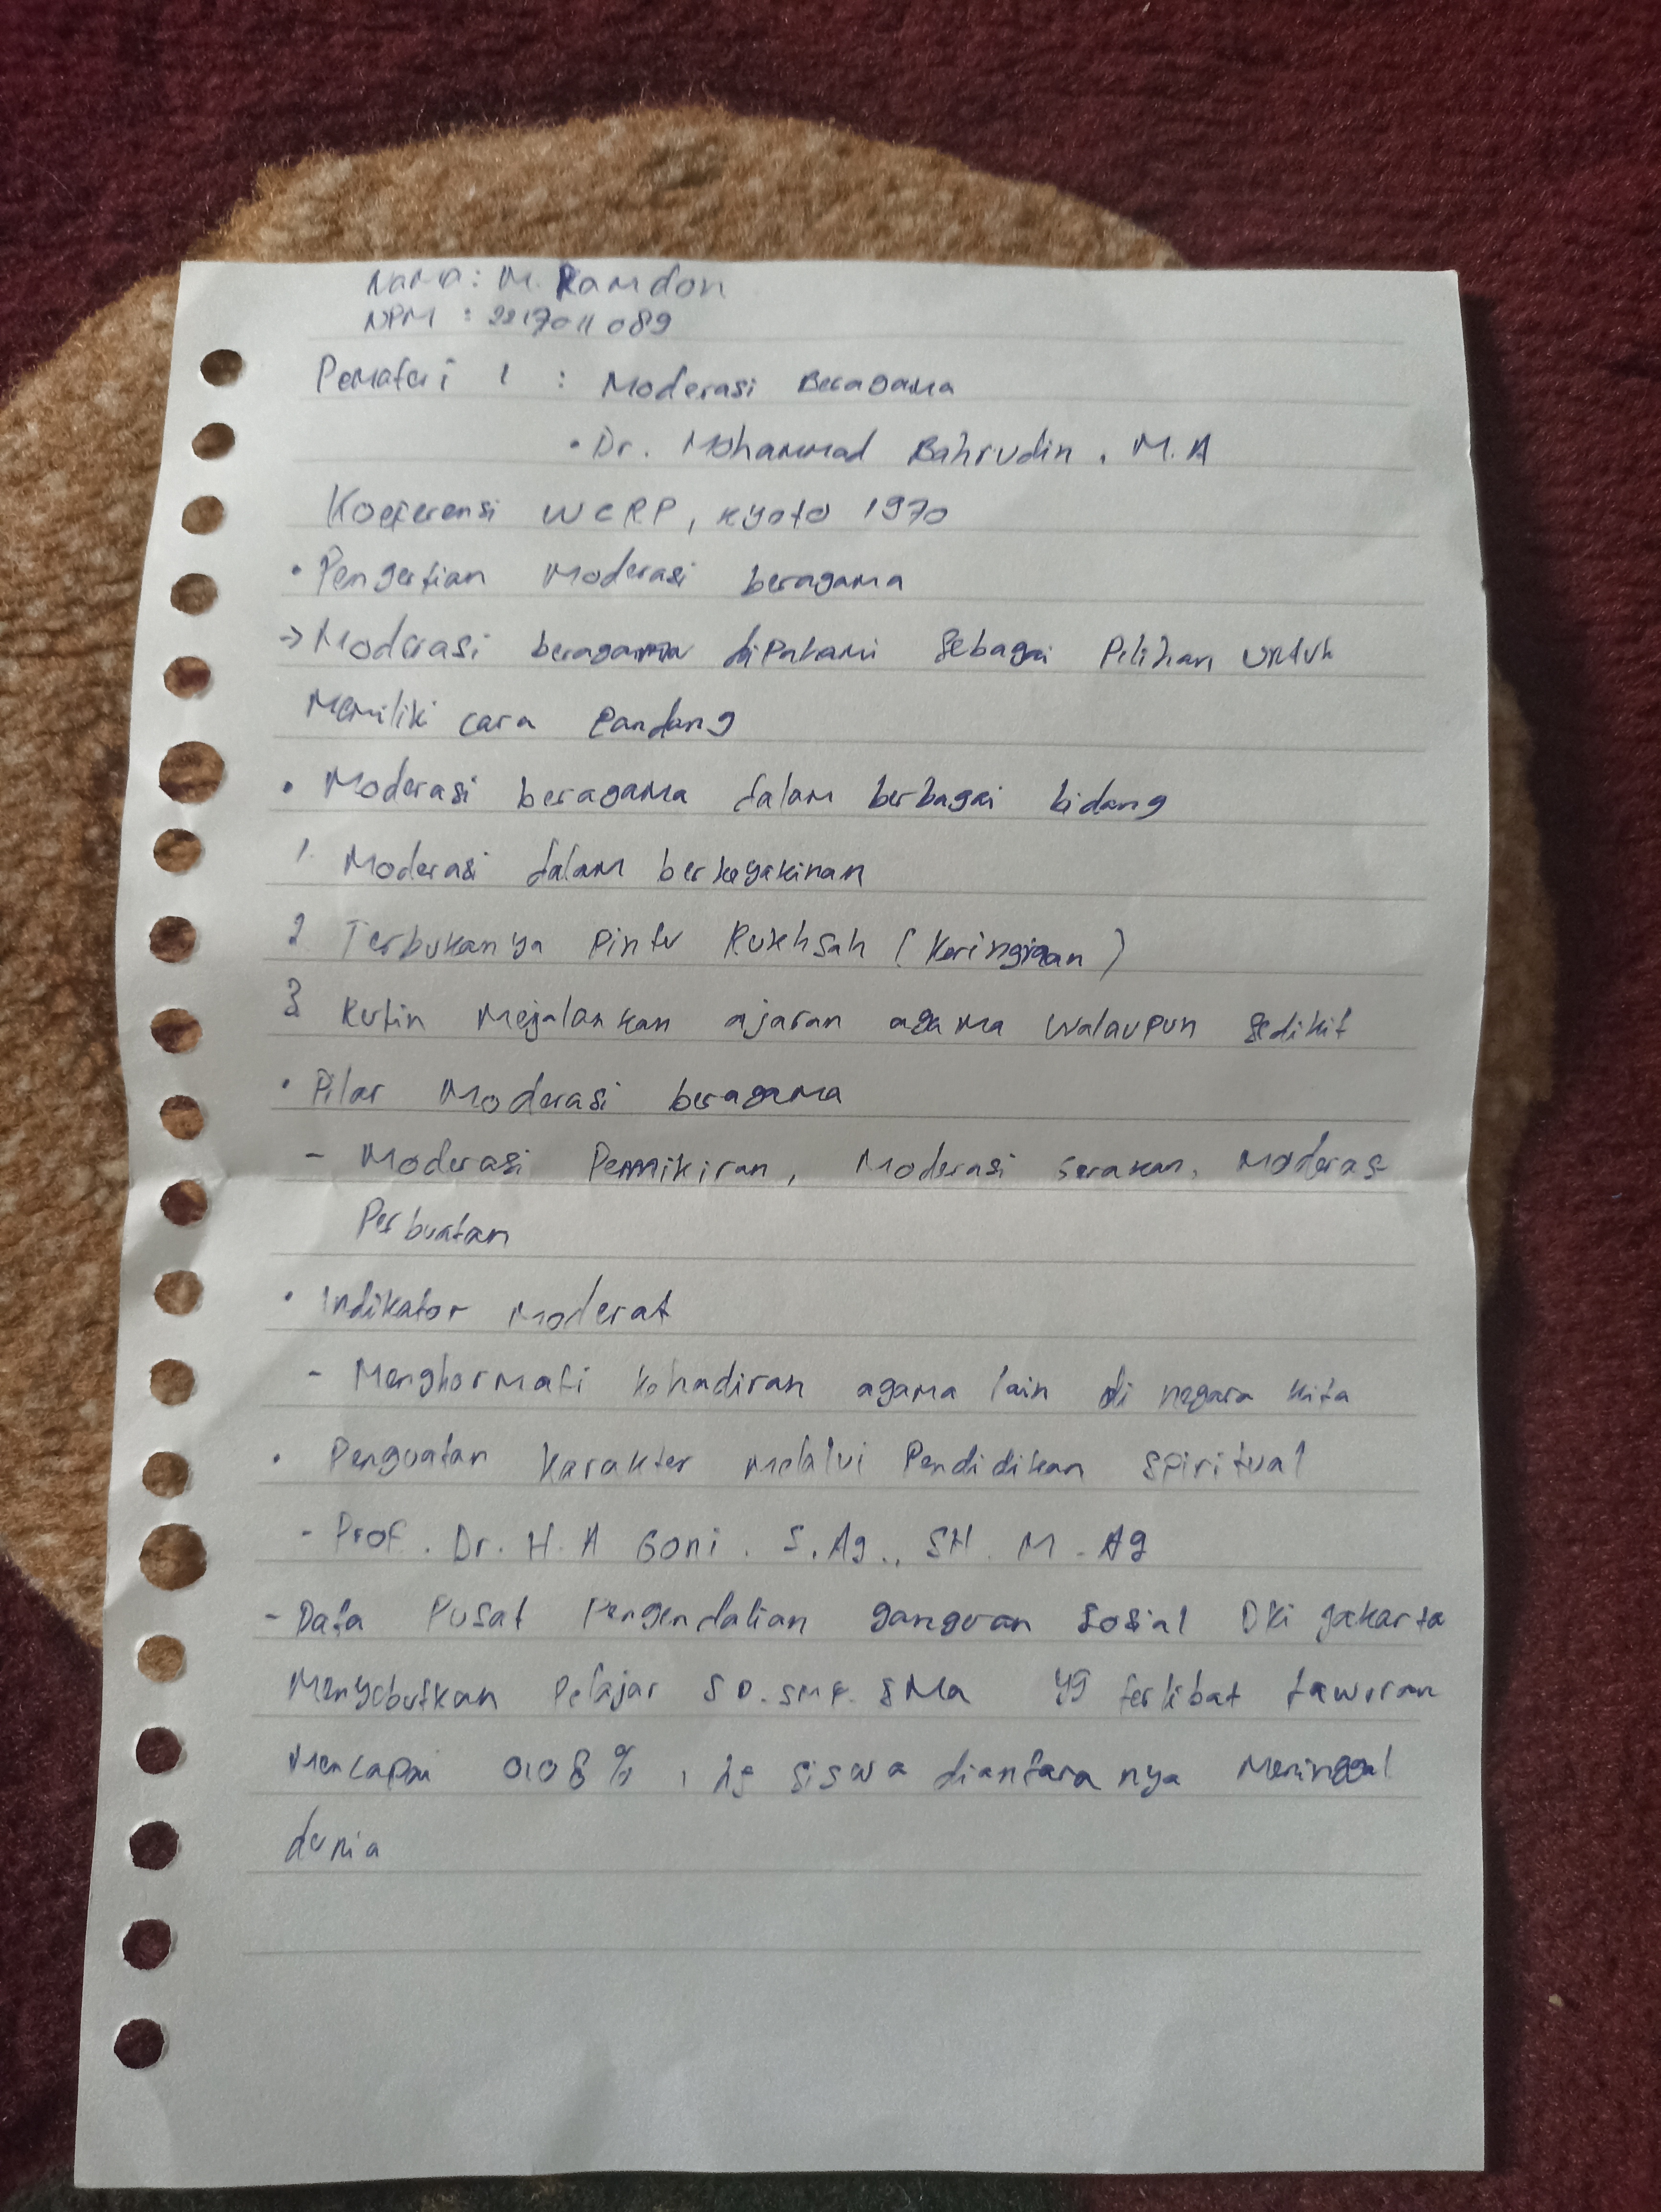 Nama : M. Ramdon
NPM : 2217011089
Pemateri 1 : Moderasi Beragama
• Dr. Mohammad Bahrudin, M.A
Koeferensi WCRP, Kyoto 1970
• Pengertian Moderasi beragama
→ Moderasi beragama dipahami sebagai Pilihan untuk
Memiliki cara Pandang
• Moderasi beragama dalam berbagai bidang
1. Moderasi dalam berkeyakinan
2 Terbukanya Pintu Rukhsah (Keringinan)
3 Rutin Mejalankan ajaran agama walaupun sedikit
• Pilar Moderasi beragama
- Moderasi Pemikiran, Moderasi Gerakan, Moderasi
Perbuatan
• Indikator Moderat
- Menghormati kehadiran agama lain di negara kita
• Penguatan Karakter melalui Pendidikan Spiritual
- Prof. Dr. H. A Goni. S.Ag., SH. M. Ag
- Data Pusat Pengendalian ganguan Sosial DKI jakarta
Menyebutkan Pelajar SD. SMP. SMa yg terlibat tawuran
Mencapai 0,08%, siswa diantaranya Meninggal
dunia